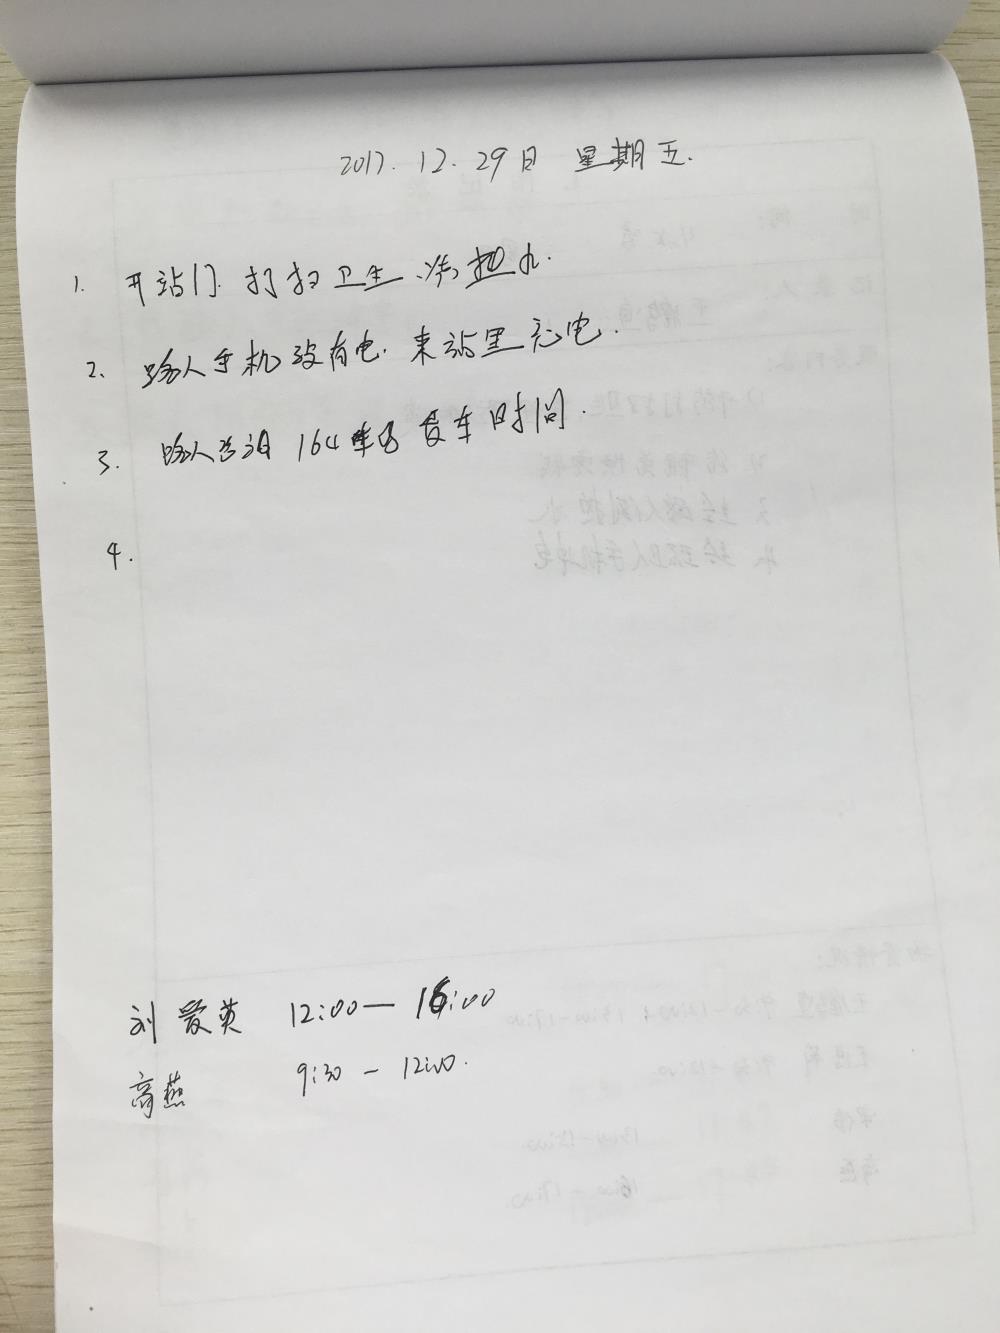 2017.12.29日 星期五.
1. 开站门.打扫卫生.烧热水.
2. 路人手机没有电.来站里充电.
3. 路人咨询164车的发车时间.
4.
刘爱英 12:00—16:00
高燕 9:30-12:00.